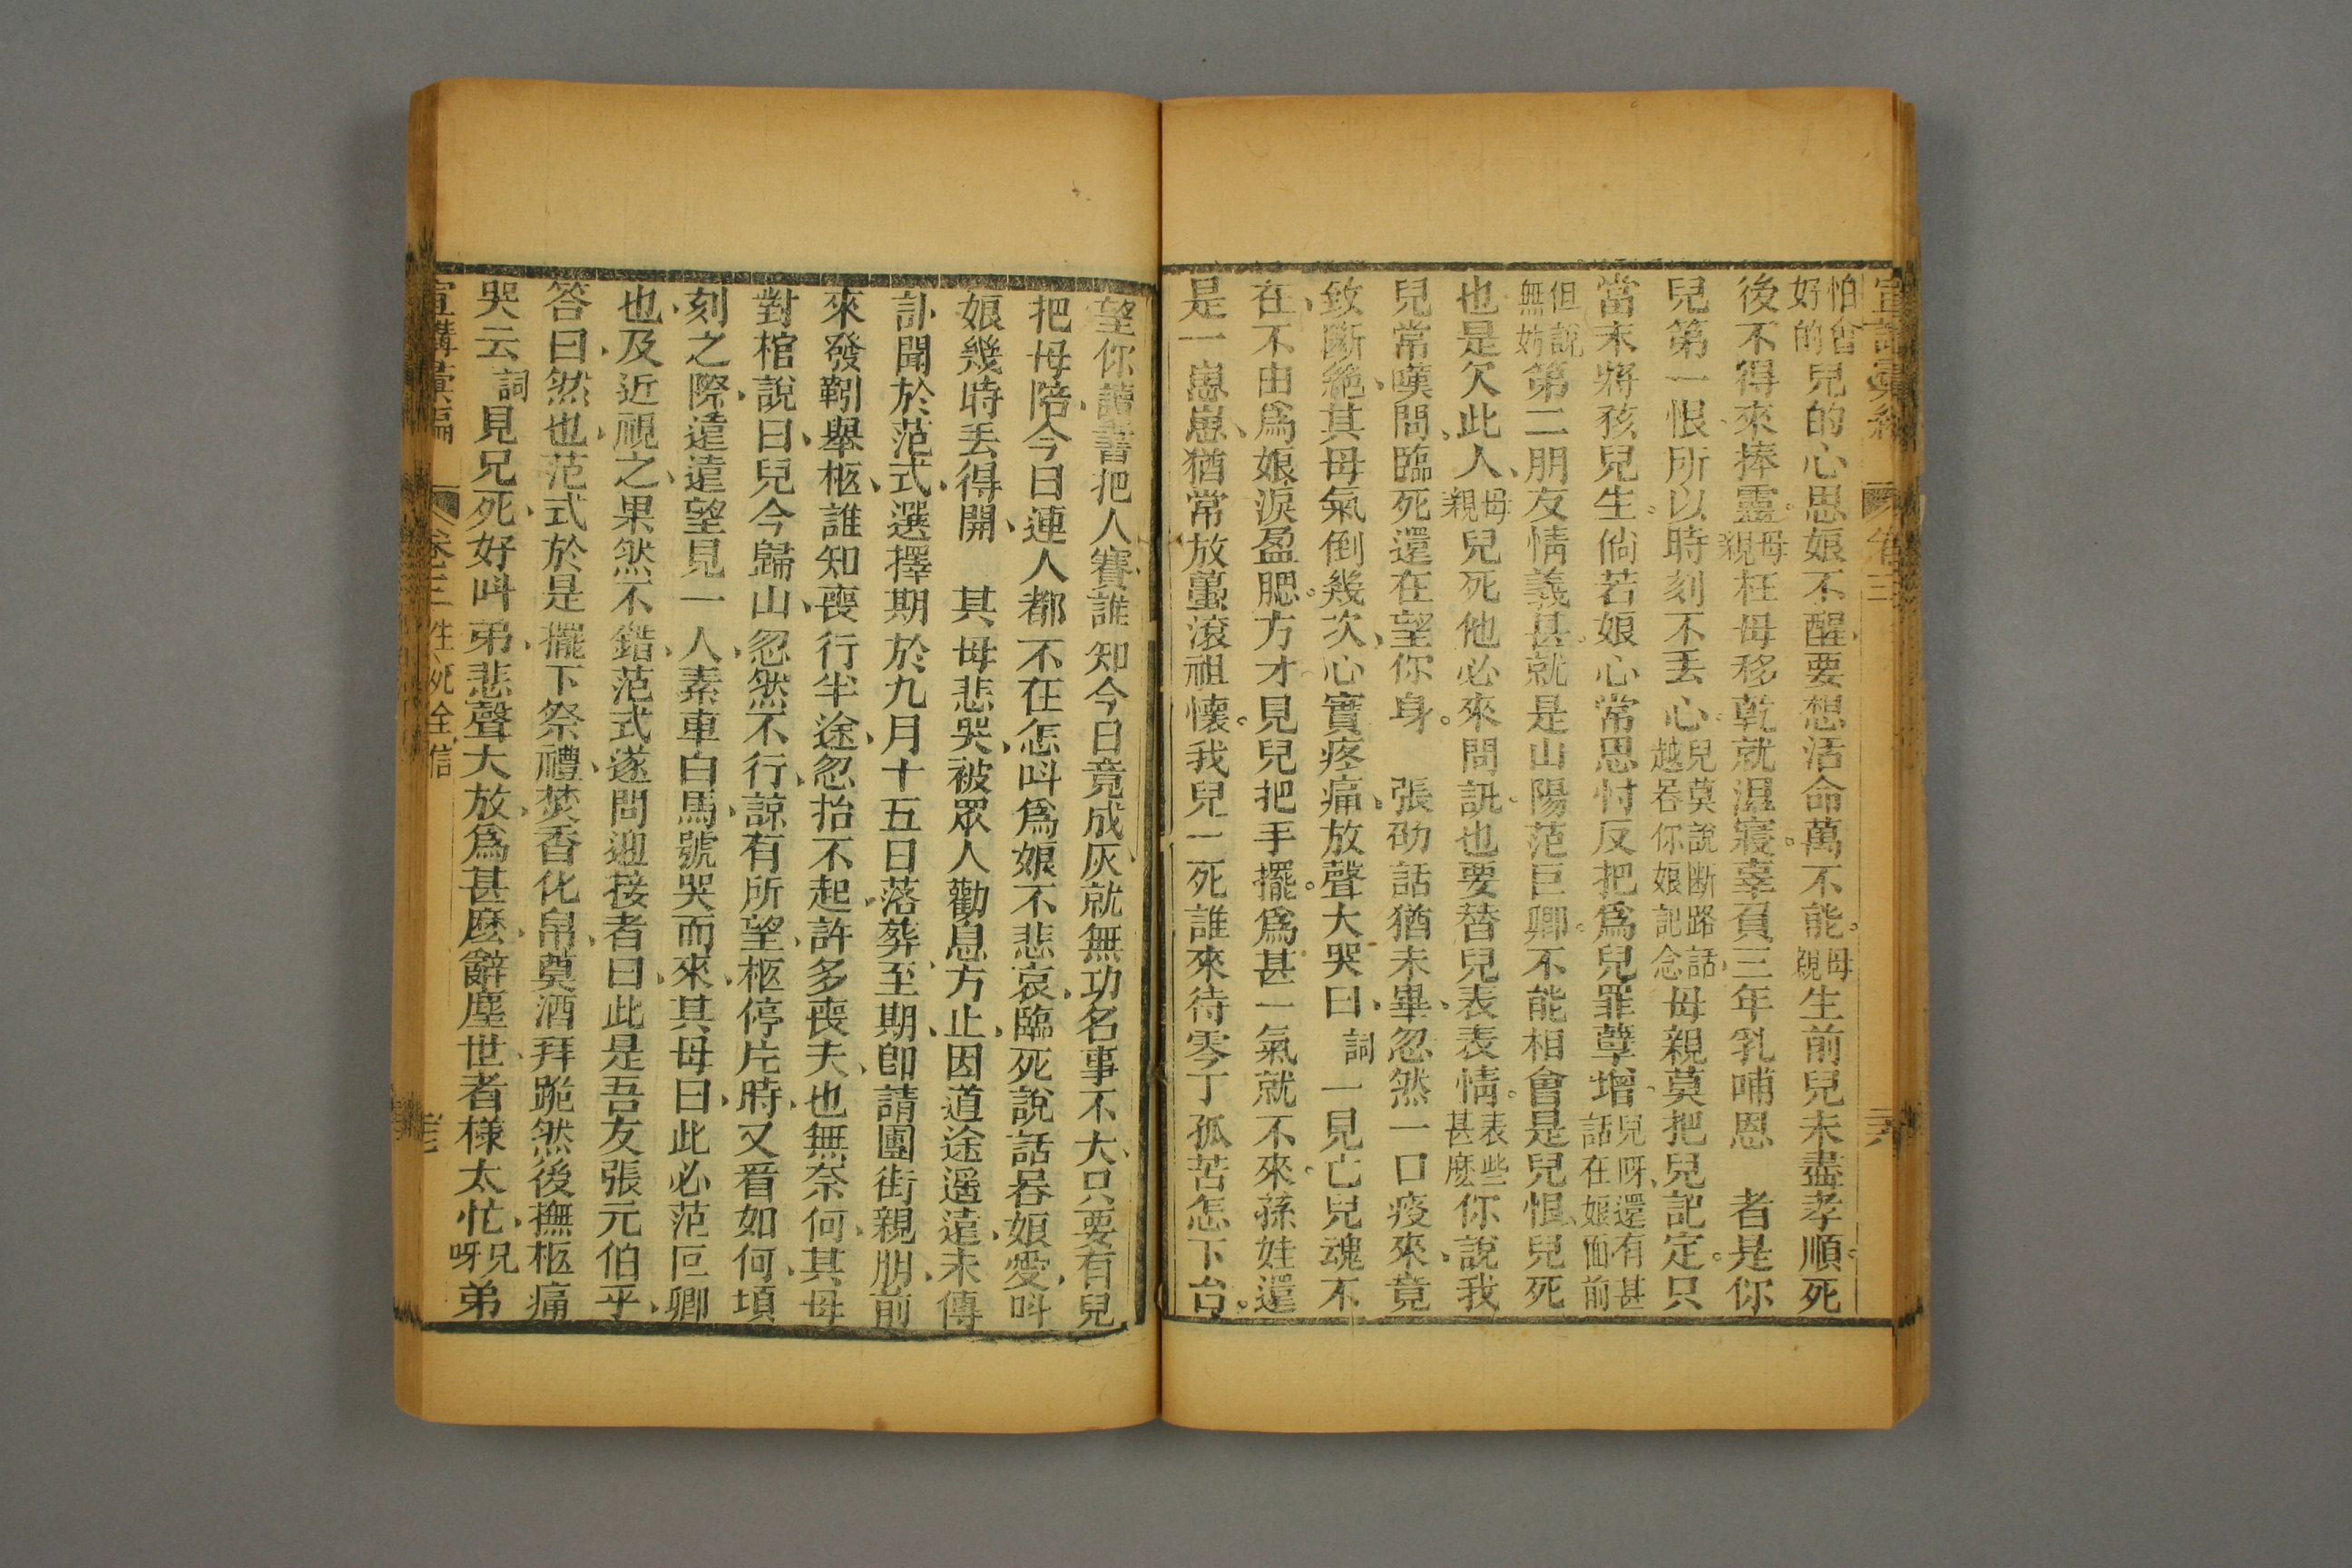 宣講彙編 卷三 二六
怕會好的兒的心思娘不醒、要想活命萬不能。母親生前兒未盡孝順。死
後不得來捧靈。母親枉母移乾就濕寢。辜負三年乳哺恩 者是你
兒第一恨所以時刻不丟心。兒莫說断路話越呑你娘記念母親莫把兒記定。只
當未將孩兒生。倘若娘心常思忖反把爲兒罪孽增、兒呀、還有甚話在娘面前
但說無妨第二朋友情義甚。就是山陽范巨卿。不能相會是兒恨、兒死
也是欠此人、母親兒死他必來問訊。也要替兒表表情。表些甚麽你說我
兒常嘆問、臨死還在望你身。 張劭話猶未畢、忽然一口痰來、竟
致斷絶、其母氣倒幾次、心實疼痛、放聲大哭曰、詞一見亡兒魂不
在、不由爲娘淚盈腮。方才見兒把手擺。爲甚一氣就不來。孫娃還
是一崽崽、猶常放蠆滾祖懷。我兒一死誰來待零丁孤苦怎下台。
望你讀書把人賽、誰知今日竟成灰、就無功名事不大、只要有兒
把母陪、今日連人都不在怎呌爲娘不悲哀、臨死說話呑娘愛、呌
娘幾時丢得開、 其母悲哭、被眾人勸息方止、因道途遥遠、未傳
訃聞於范式、選擇期於九月十五日落葬、至期、卽請團街親朋、前
來發靷舉柩、誰知喪行半途、忽抬不起、許多喪夫、也無奈何、其母
對棺說曰、兒今歸山、忽然不行、諒有所望、柩停片時、又看如何、頃
刻之際、遠遠望見一人、素車白馬、號哭而來、其母曰、此必范巨卿
也、及近視之、果然不錯、范式遂問迎接者曰、此是吾友張元伯乎、
答曰、然也、范式於是擺下祭禮、焚香化帛、奠酒拜跪然後撫柩痛
哭云詞見兄死、好呌弟、悲聲大放、爲甚麽、辭塵世、者樣太忙、兄呀弟
宣講彙編 卷三 生死全信